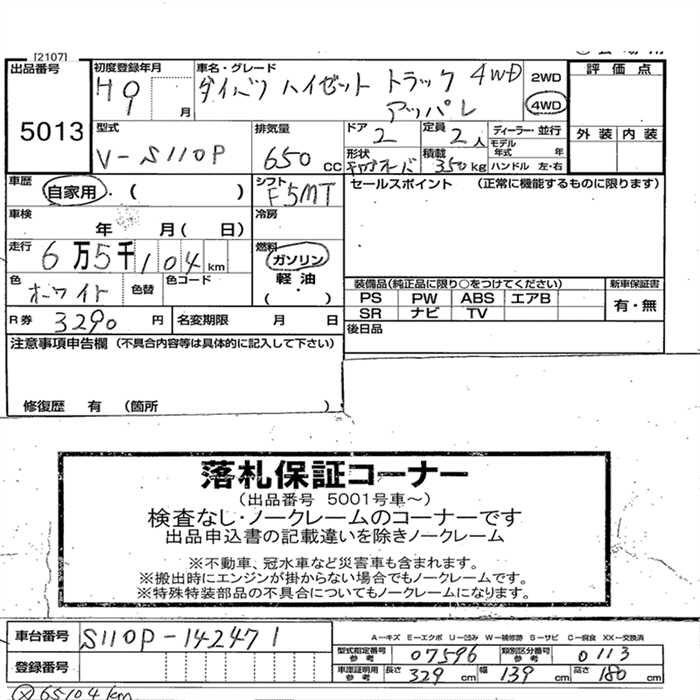 [2107]
出品番号 初度登録年月 車名・グレード 評価点
5013 H9 月 ダイハツ ハイゼット トラック 4WD 2WD
アッパレ 4WD
型式 排気量 ドア 定員 ディーラー・並行 外装 内装
V-S110P 650cc 2 2人 モデル年式 年
形状 積載 350kg ハンドル 左・右
車歴 自家用・( ) シフト F5MT セールスポイント (正常に機能するものに限ります)
車検 年 月(日) 冷房
走行 6万5千104km 燃料 ガソリン
軽油
・( )
色 ホワイト 色替 色コード
装備品(純正品に限り○をつけてください) 新車保証書
PS PW ABS エアB 有・無
SR ナビ TV
R券 3290円 名変期限 月 日 後日品
注意事項申告欄 (不具合内容等は具体的に記入して下さい)
修復歴 有 (箇所 )
落札保証コーナー
(出品番号 5001号車~)
検査なし・ノークレームのコーナーです
出品申込書の記載違いを除きノークレーム
※不動車、冠水車など災害車も含まれます。
※搬出時にエンジンが掛からない場合でもノークレームです。
※特殊特装部品の不具合についてもノークレームになります。
車台番号 S110P-142471 A-キズ E-エクボ U-凹み W-補修跡 S-サビ C-腐食 XX-交換済
型式指定番号 参考 07596 類別区分番号 参考 0113
登録番号 車庫証明用 参考 長さ 329cm 幅 139cm 高さ 180cm
65104km